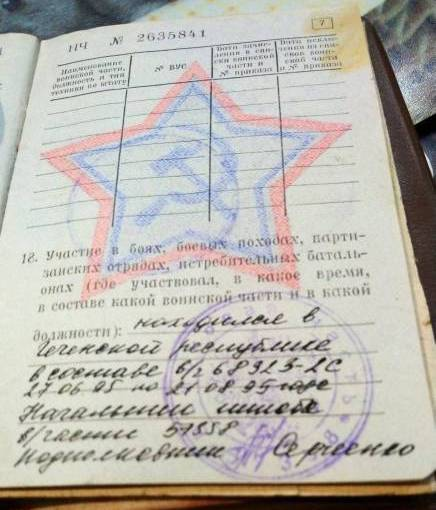 7
НЧ № 2635841
Наименование
воинской части,
должность и тип
техники по штату
№ ВУС
Дата зачис-
ления в спи-
ски воинской
части и
№ приказа
Дата исклю-
чения из спи-
сков воин-
ской части
и № приказа
18. Участие в боях, боевых походах, парти-
занских отрядах, истребительных баталь-
онах (где участвовал, в какое время,
в составе какой воинской части и в какой
должности): находился в
Чеченской республике
в составе в/ч 68323-2С
27.06.95 по 21.08.95 года
Начальник штаба
в/части 57338
подполковник Сергиенко